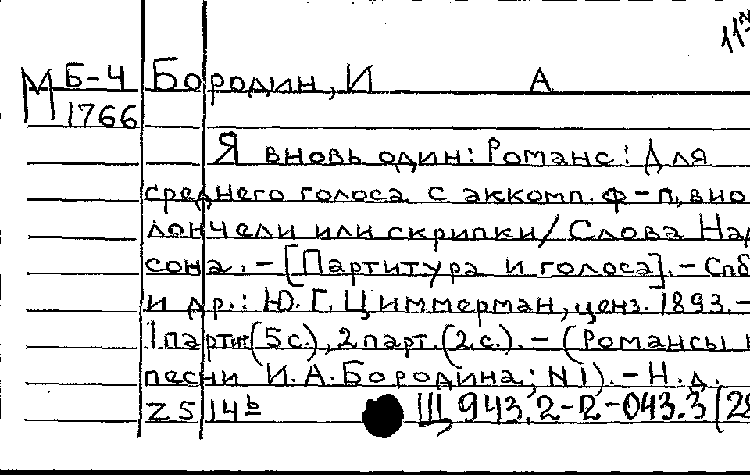 М Б-4 Бородин, И А
1766
Я вновь один: Романс: Для
среднего голоса с аккомп. ф-п, вио
лончели или скрипки/ Слова Над
сона. - [Партитура и голоса]. - Спб
и др.: Ю. Г. Циммерман, ценз. 1893. -
1 парт (5 с.), 2 парт. (2 с.). - (Романсы
песни И. А. Бородина; N 1). - Н. д.
Z 5 14ᵇ Щ 943.2-2-043.3 (2